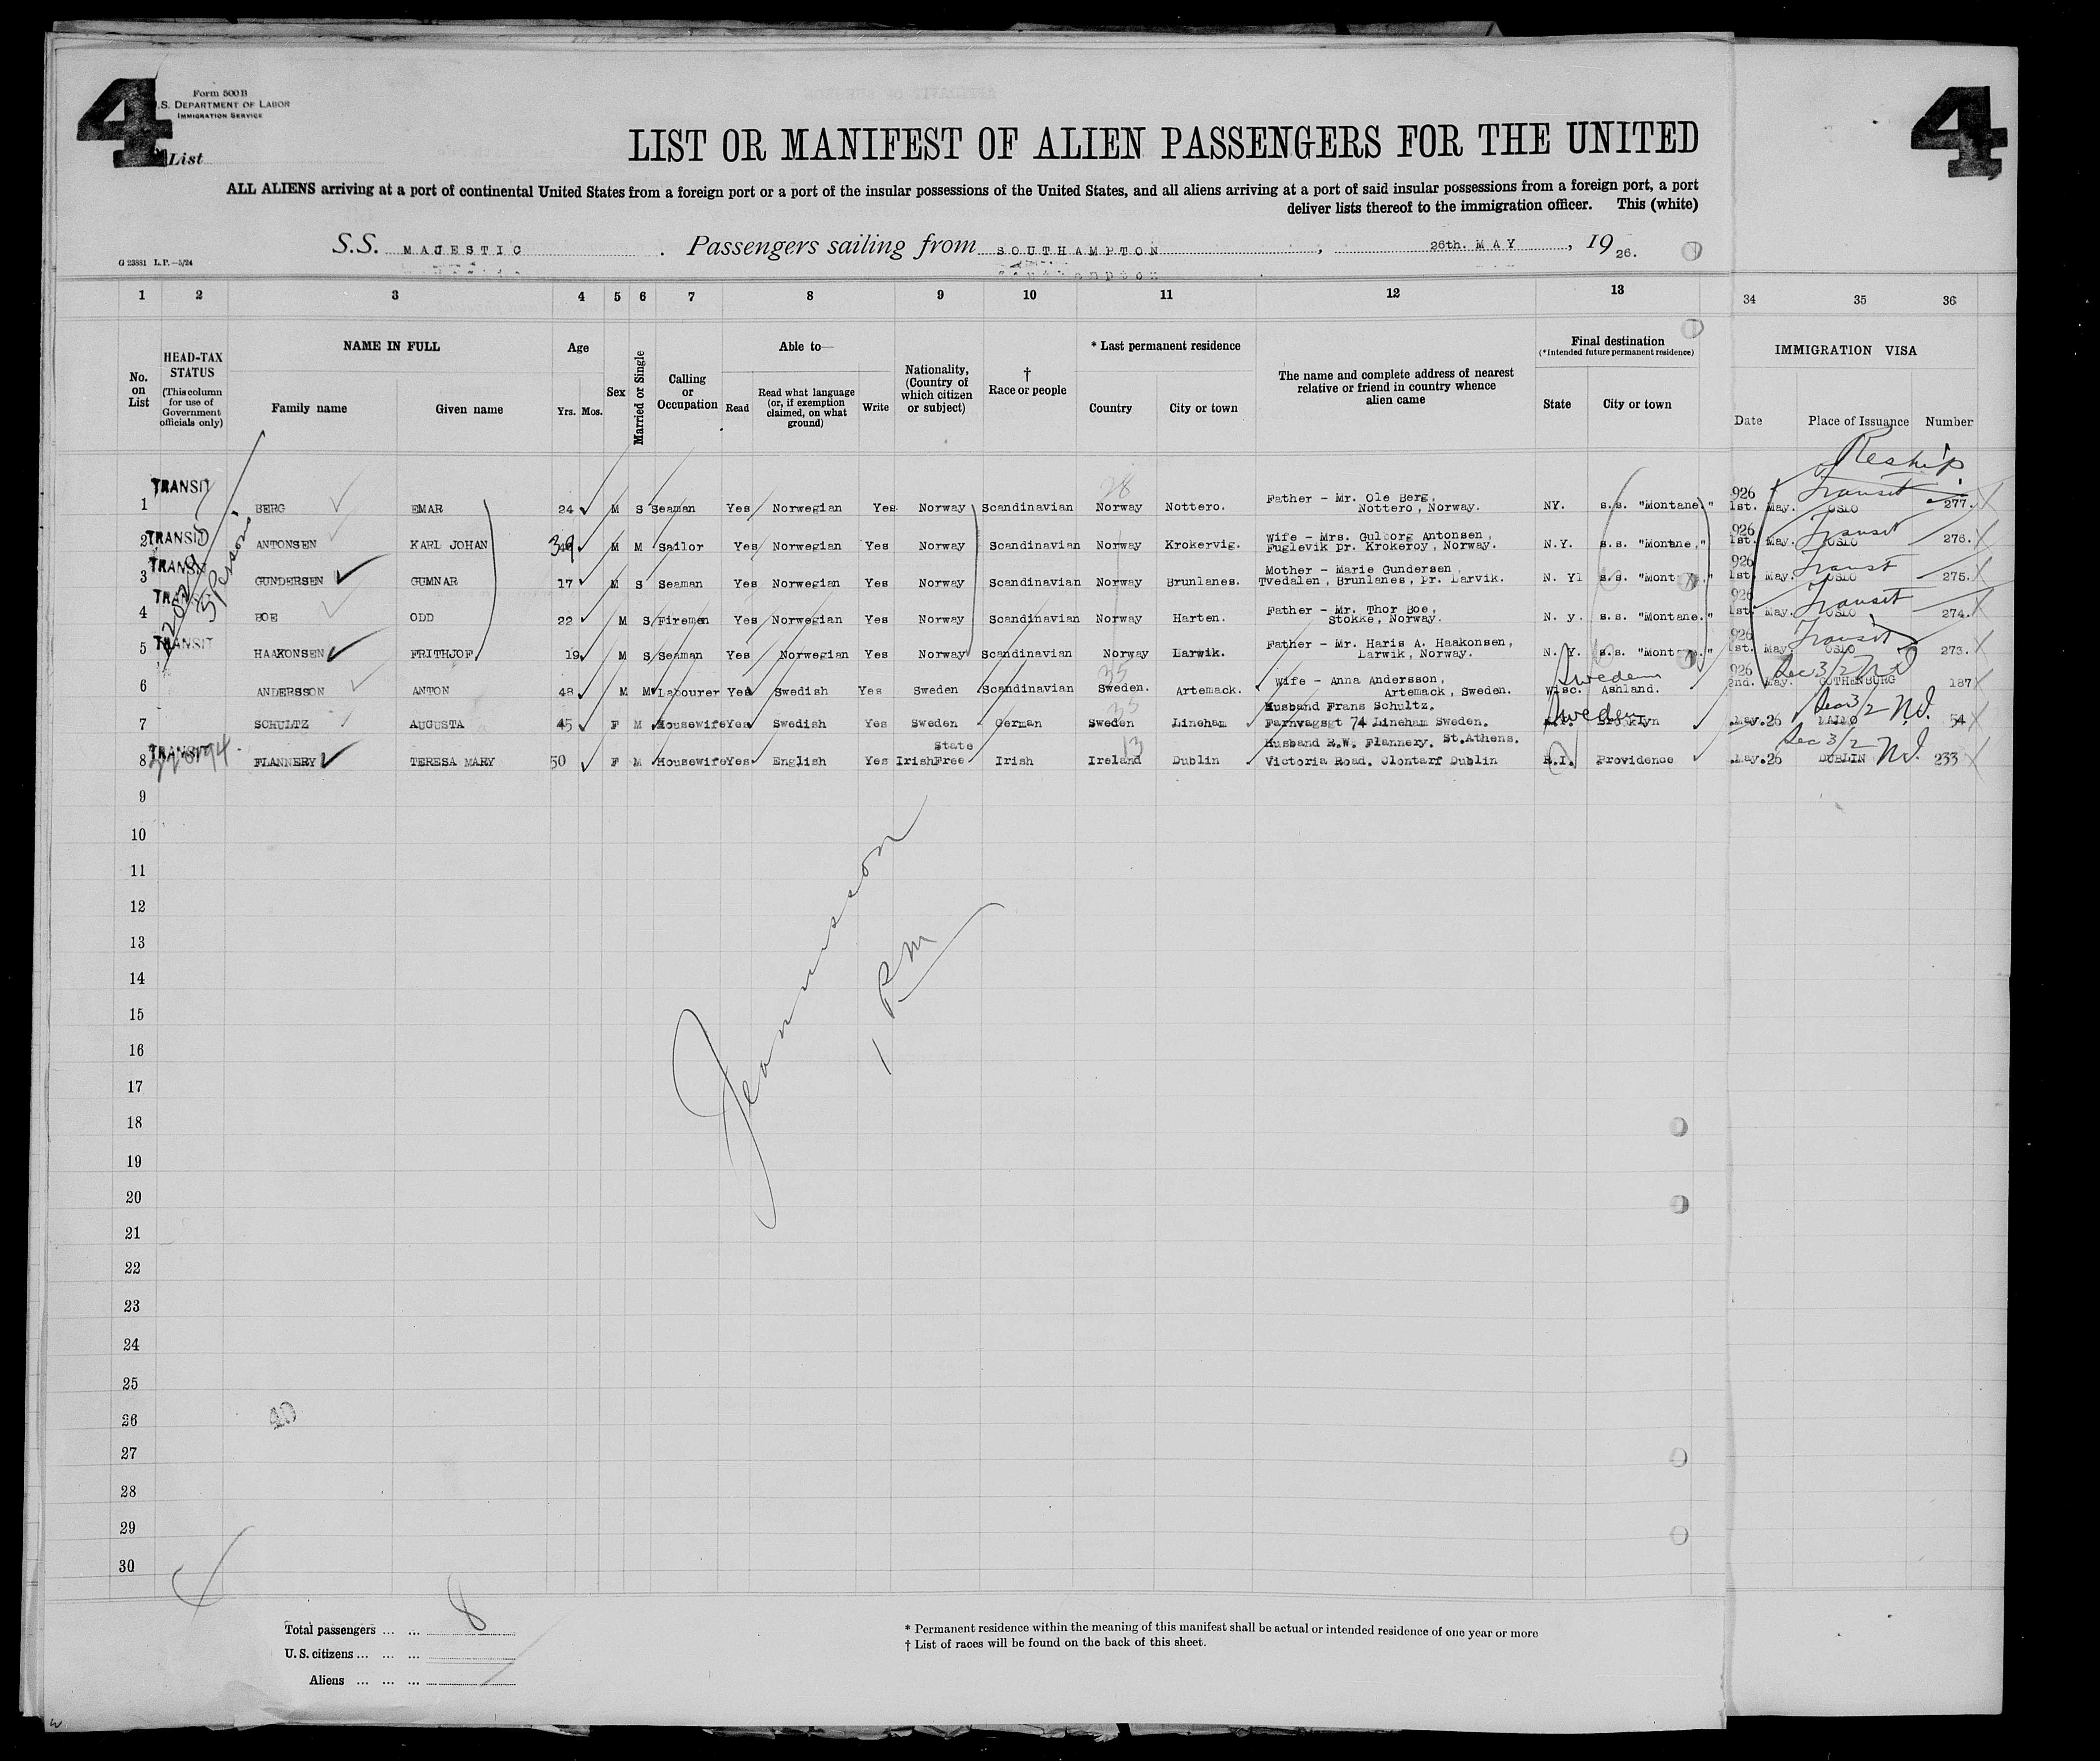 4
Form 500B
U.S. DEPARTMENT OF LABOR
IMMIGRATION SERVICE
List
4
LIST OR MANIFEST OF ALIEN PASSENGERS FOR THE UNITED
ALL ALIENS arriving at a port of continental United States from a foreign port or a port of the insular possessions of the United States, and all aliens arriving at a port of said insular possessions from a foreign port, a port
deliver lists thereof to the immigration officer. This (white)
S.S. MAJESTIC. Passengers sailing from SOUTHAMPTON, 26th. MAY, 1926.
G 23881 L.P.—5/24
1 2 3 4 5 6 7 8 9 10 11 12 13 34 35 36
No. on List
HEAD-TAX STATUS (This column for use of Government officials only)
NAME IN FULL
Family name
Given name
Age
Yrs. Mos.
Sex
Married or Single
Calling or Occupation
Able to—
Read
Read what language (or, if exemption claimed, on what ground)
Write
Nationality, (Country of which citizen or subject)
† Race or people
* Last permanent residence
Country
City or town
The name and complete address of nearest relative or friend in country whence alien came
Final destination
(*Intended future permanent residence)
State
City or town
IMMIGRATION VISA
Date Place of Issuance Number
Reship
TRANSIT Transit
1 BERG EMAR 24 M S Seaman Yes Norwegian Yes Norway Scandinavian 28 Norway Nottero. Father - Mr. Ole Berg, Nottero, Norway. NY. s.s. "Montane." 926 1st. May. OSLO 277.
2 TRANSIT ANTONSEN KARL JOHAN 39 M M Sailor Yes Norwegian Yes Norway Scandinavian Norway Krokervig. Wife - Mrs. Gulborg Antonsen, Fuglevik pr. Krokeroy, Norway. N.Y. s.s. "Montane," 926 1st. May. Transit OSLO 276.
3 TRANSIT GUNDERSEN GUMNAR 17 M S Seaman Yes Norwegian Yes Norway Scandinavian Norway Brunlanes. Mother - Marie Gundersen, Tvedalen, Brunlanes, pr. Larvik. N. Y1 s.s. 926 1st. May. Transit OSLO 275.
4 TRANSIT BOE ODD 22 M S Fireman Yes Norwegian Yes Norway Scandinavian Norway Harten. Father - Mr. Thor Boe, Stokke, Norway. N. y. s.s. "Montane." 926 1st. May. Transit OSLO 274.
5 TRANSIT HAAKONSEN FRITHJOF 19 M S Seaman Yes Norwegian Yes Norway Scandinavian Norway Larwik. Father - Mr. Haris A. Haakonsen, Larwik, Norway. N. Y. s.s. 926 1st. May. Transit OSLO 273.
5 persons
6 ANDERSSON ANTON 48 M M Labourer Yes Swedish Yes Sweden Scandinavian 35 Sweden. Artemack. Wife - Anna Andersson, Artemack, Sweden. Sweden Wisc. Ashland. 926 2nd. May. Sec 3/2 Nd GOTHENBURG 187
7 SCHULTZ AUGUSTA 45 F M Housewife Yes Swedish Yes Sweden German 35 Sweden Lineham Husband Frans Schultz. Farnvagsgt 74 Lineham Sweden. Sweden Brooklyn May.26 Sec 3/2 Nd. MALMO 54
8 TRANSIT FLANNERY TERESA MARY 50 F M Housewife Yes English Yes Irish Free State Irish 13 Ireland Dublin Husband R.W. Flannery. St.Athens. Victoria Road. Clontarf Dublin R.I. Providence May.26 Sec 3/2 Nd. DUBLIN 233
9
10
11
12
13
14
15
16
17
18
19
20
21
22
23
24
25
26
27
28
29
30
1 PM
40
Total passengers ... ... 8
U.S. citizens ... ... ...
Aliens ... ... ...
* Permanent residence within the meaning of this manifest shall be actual or intended residence of one year or more
† List of races will be found on the back of this sheet.